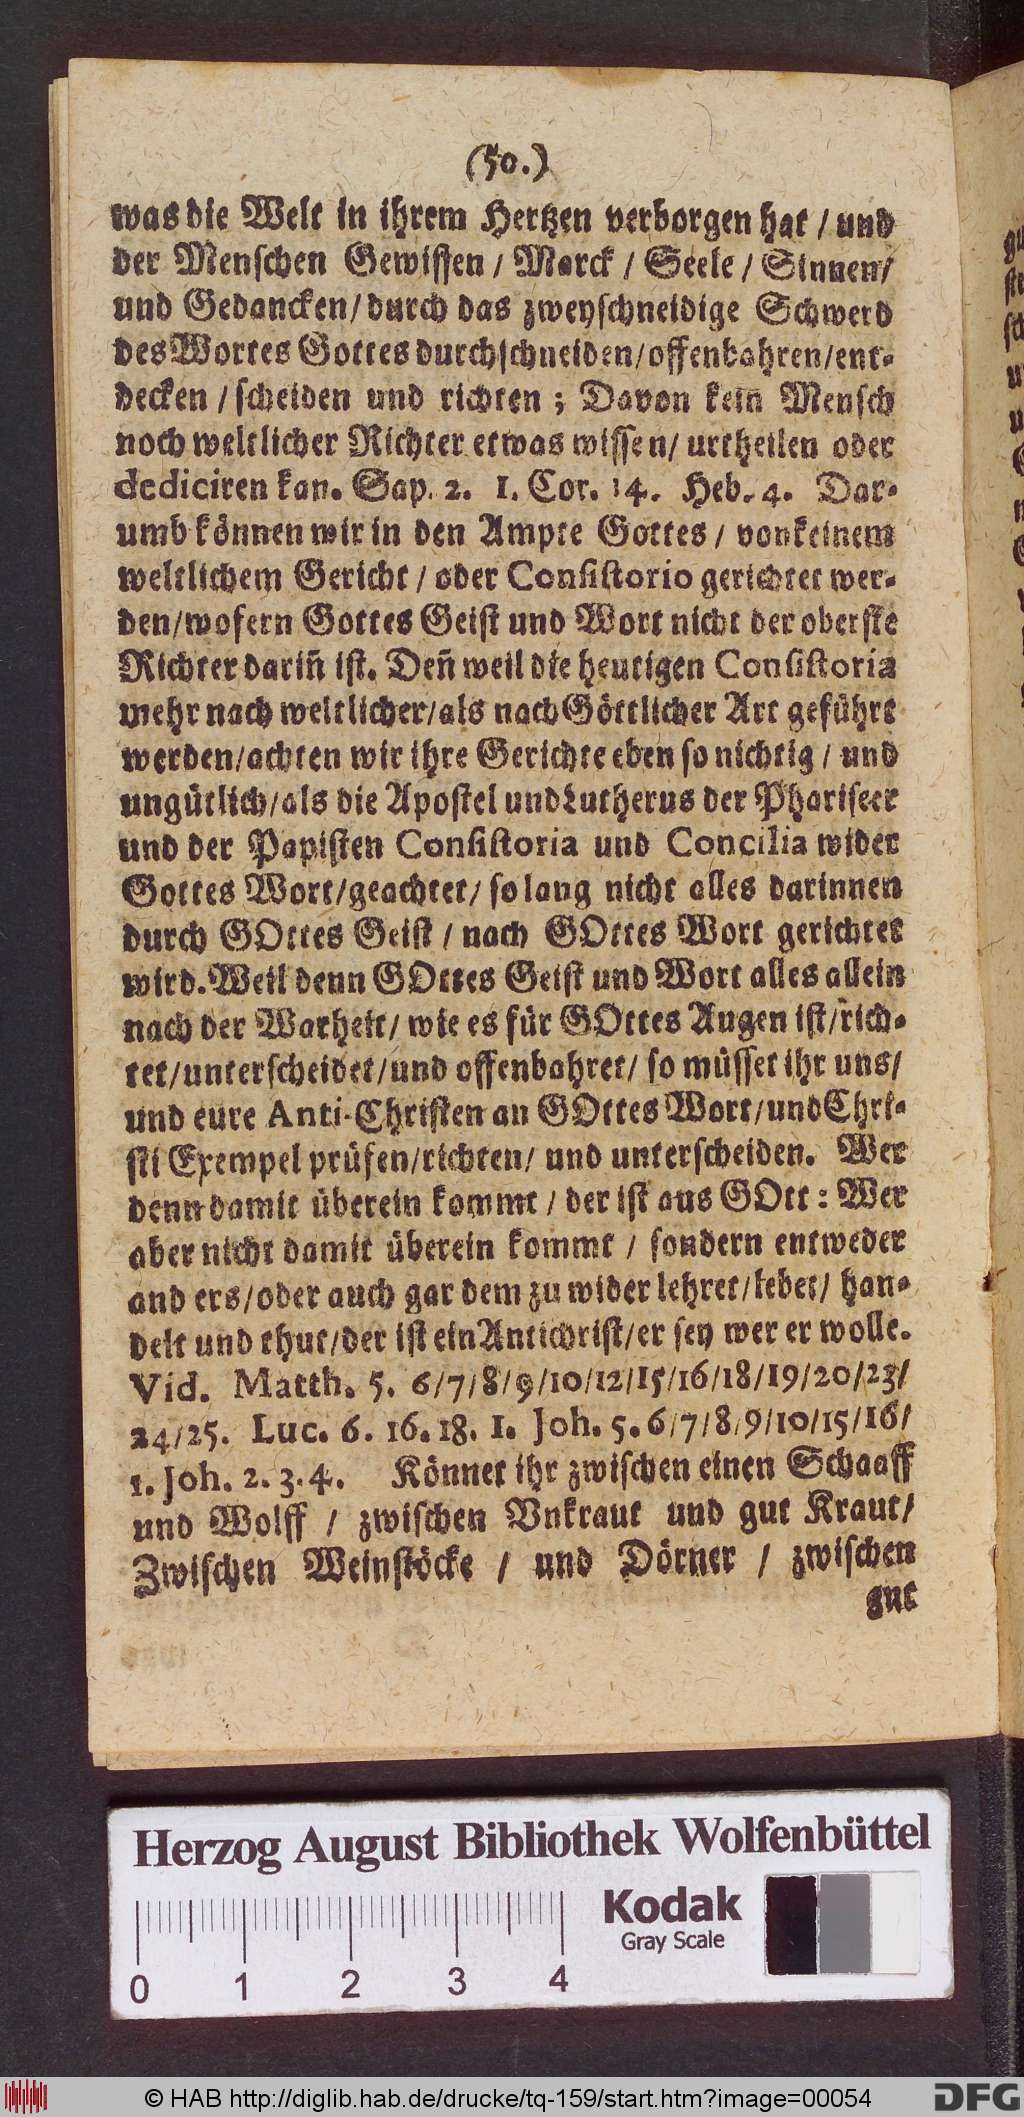 (50.)
was die Welt in ihrem Hertzen verborgen hat / und
der Menschen Gewissen / Marck / Seele / Sinnen/
und Gedancken/ durch das zweyschneidige Schwerd
des Wortes Gottes durchschneiden/offenbahren/ent-
decken / scheiden und richten ; Davon kein̄ Mensch
noch weltlicher Richter etwas wissen/ urtheilen oder
dediciren kan. Sap. 2. 1. Cor. 14. Heb. 4. Dar-
umb können wir in den Ampte Gottes / von keinem
weltlichem Gericht / oder Consistorio gerichtet wer-
den/wofern Gottes Geist und Wort nicht der oberste
Richter darin̄ ist. Den̄ weil die heutigen Consistoria
mehr nach weltlicher/als nach Göttlicher Art geführt
werden/achten wir ihre Gerichte eben so nichtig / und
ungütlich/als die Apostel und Lutherus der Phariseer
und der Papisten Consistoria und Concilia wider
Gottes Wort/geachtet/ so lang nicht alles darinnen
durch GOttes Geist / nach GOttes Wort gerichtet
wird. Weil denn GOttes Geist und Wort alles allein
nach der Warheit/ wie es für GOttes Augen ist/rich-
tet/unterscheidet/und offenbahret/ so müsset ihr uns/
und eure Anti-Christen an GOttes Wort/und Chri-
sti Exempel prüfen/richten/ und unterscheiden. Wer
denn damit überein kommt / der ist aus GOtt : Wer
aber nicht damit überein kommt / sondern entweder
and ers/oder auch gar dem zu wider lehret/lebet/ han-
delt und thut/der ist ein Antichrist/er sey wer er wolle.
Vid. Matth. 5. 6/7/8/9/10/12/15/16/18/19/20/23/
24/25. Luc. 6. 16. 18. 1. Joh. 5. 6/7/8/9/10/15/16/
1. Joh. 2. 3. 4. Könnet ihr zwischen einen Schaaff
und Wolff / zwischen Vnkraut und gut Kraut/
Zwischen Weinstöcke / und Dörner / zwischen
gut
Herzog August Bibliothek Wolfenbüttel
Kodak
Gray Scale
0 1 2 3 4
© HAB http://diglib.hab.de/drucke/tq-159/start.htm?image=00054
DFG